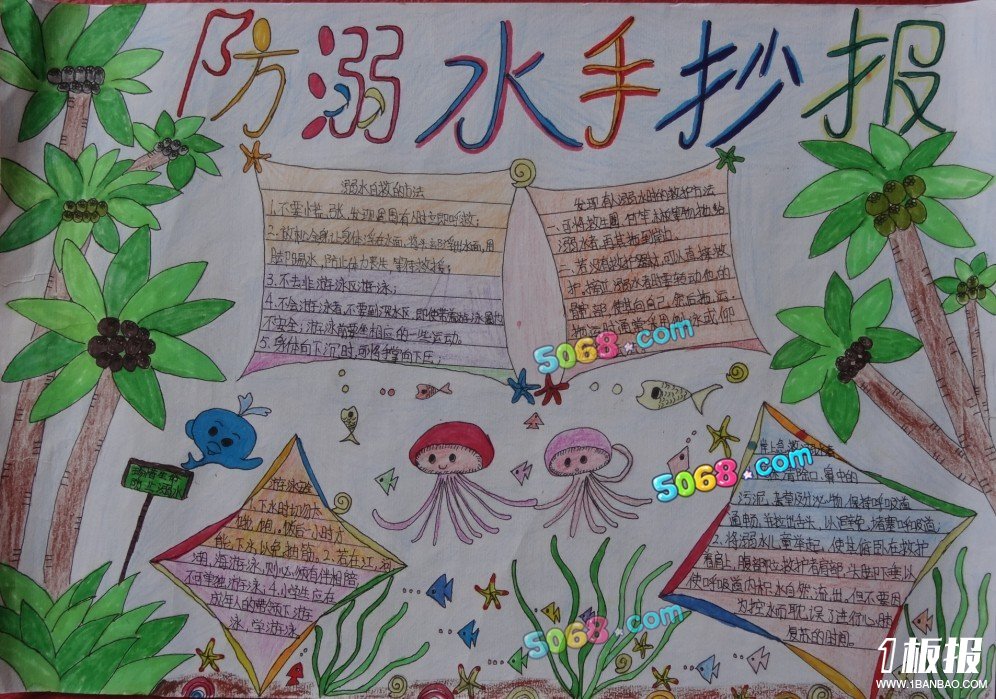 防溺水手抄报
溺水自救的方法
1.不要慌张,发现周围有人时立即呼救;
2.放松全身,让身体漂浮在水面,将头部浮出水面,用
脚踢水,防止体力丧失,等待救援;
3.不去非游泳区游泳;
4.不会游泳者,不要到深水区,即使带着游泳圈也
不安全;游泳前要做相应的一些运动。
5.身体向下沉时,可将手掌向下压;
发现有人溺水时的救护方法
一、可将救生圈、竹竿、木板等物抛给
溺水者,再其拖到岸边。
二、若没有救护器材,可以直接救
护,接近溺水者时要转动他的
髋部,使其背向自己,然后拖运,
拖运时通常采用侧泳或仰
5068.com
防止溺水
游泳
1、下水时切勿太
饿、饱,饭后一小时方
能下水,以免抽筋。2、若在江,河
湖,海游泳,则必须有伴相陪
不可单独游泳;4.小学生应在
成年人的带领下游
泳,学游泳
清除口、鼻中的
污泥、杂草及分泌物,保持呼吸道
通畅,并拉出舌头,以避免堵塞呼吸道;
2、将溺水儿童举起,使其俯卧在救护
者肩上,腹部紧贴救护者肩部,头脚下垂,以
使呼吸道内积水自然流出,但不要因
为控水而耽误了进行心肺
复苏的时间。
5068.com
5068.com
1板报
WWW.1BANBAO.COM